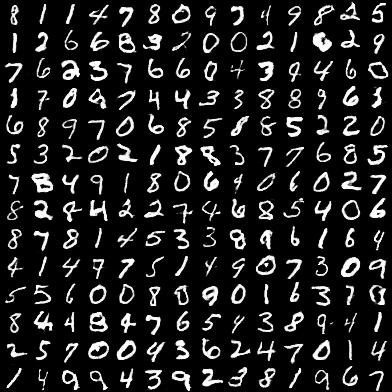 8 1 1 4 7 8 0 9 3 4 9 8 2 5
1 2 6 6 8 3 2 0 0 2 1 6 2 9
7 6 2 3 7 6 6 0 4 3 9 4 6 0
1 7 0 9 7 4 4 3 3 8 8 9 6 3
6 8 9 7 0 6 8 5 8 8 5 2 2 0
5 3 2 0 2 1 8 8 3 7 7 6 8 5
7 8 4 9 1 8 0 6 9 0 6 0 2 7
8 2 8 4 2 2 7 4 6 8 5 4 0 6
8 7 8 1 4 5 3 3 8 9 6 1 6 4
4 1 4 7 7 5 1 4 9 0 7 3 0 9
5 5 6 0 0 8 0 9 0 1 6 3 7 8
8 4 4 8 4 7 6 5 4 3 8 9 4 1
2 5 7 0 0 4 3 6 2 4 7 0 1 4
1 4 9 9 4 3 9 2 3 8 1 9 6 7